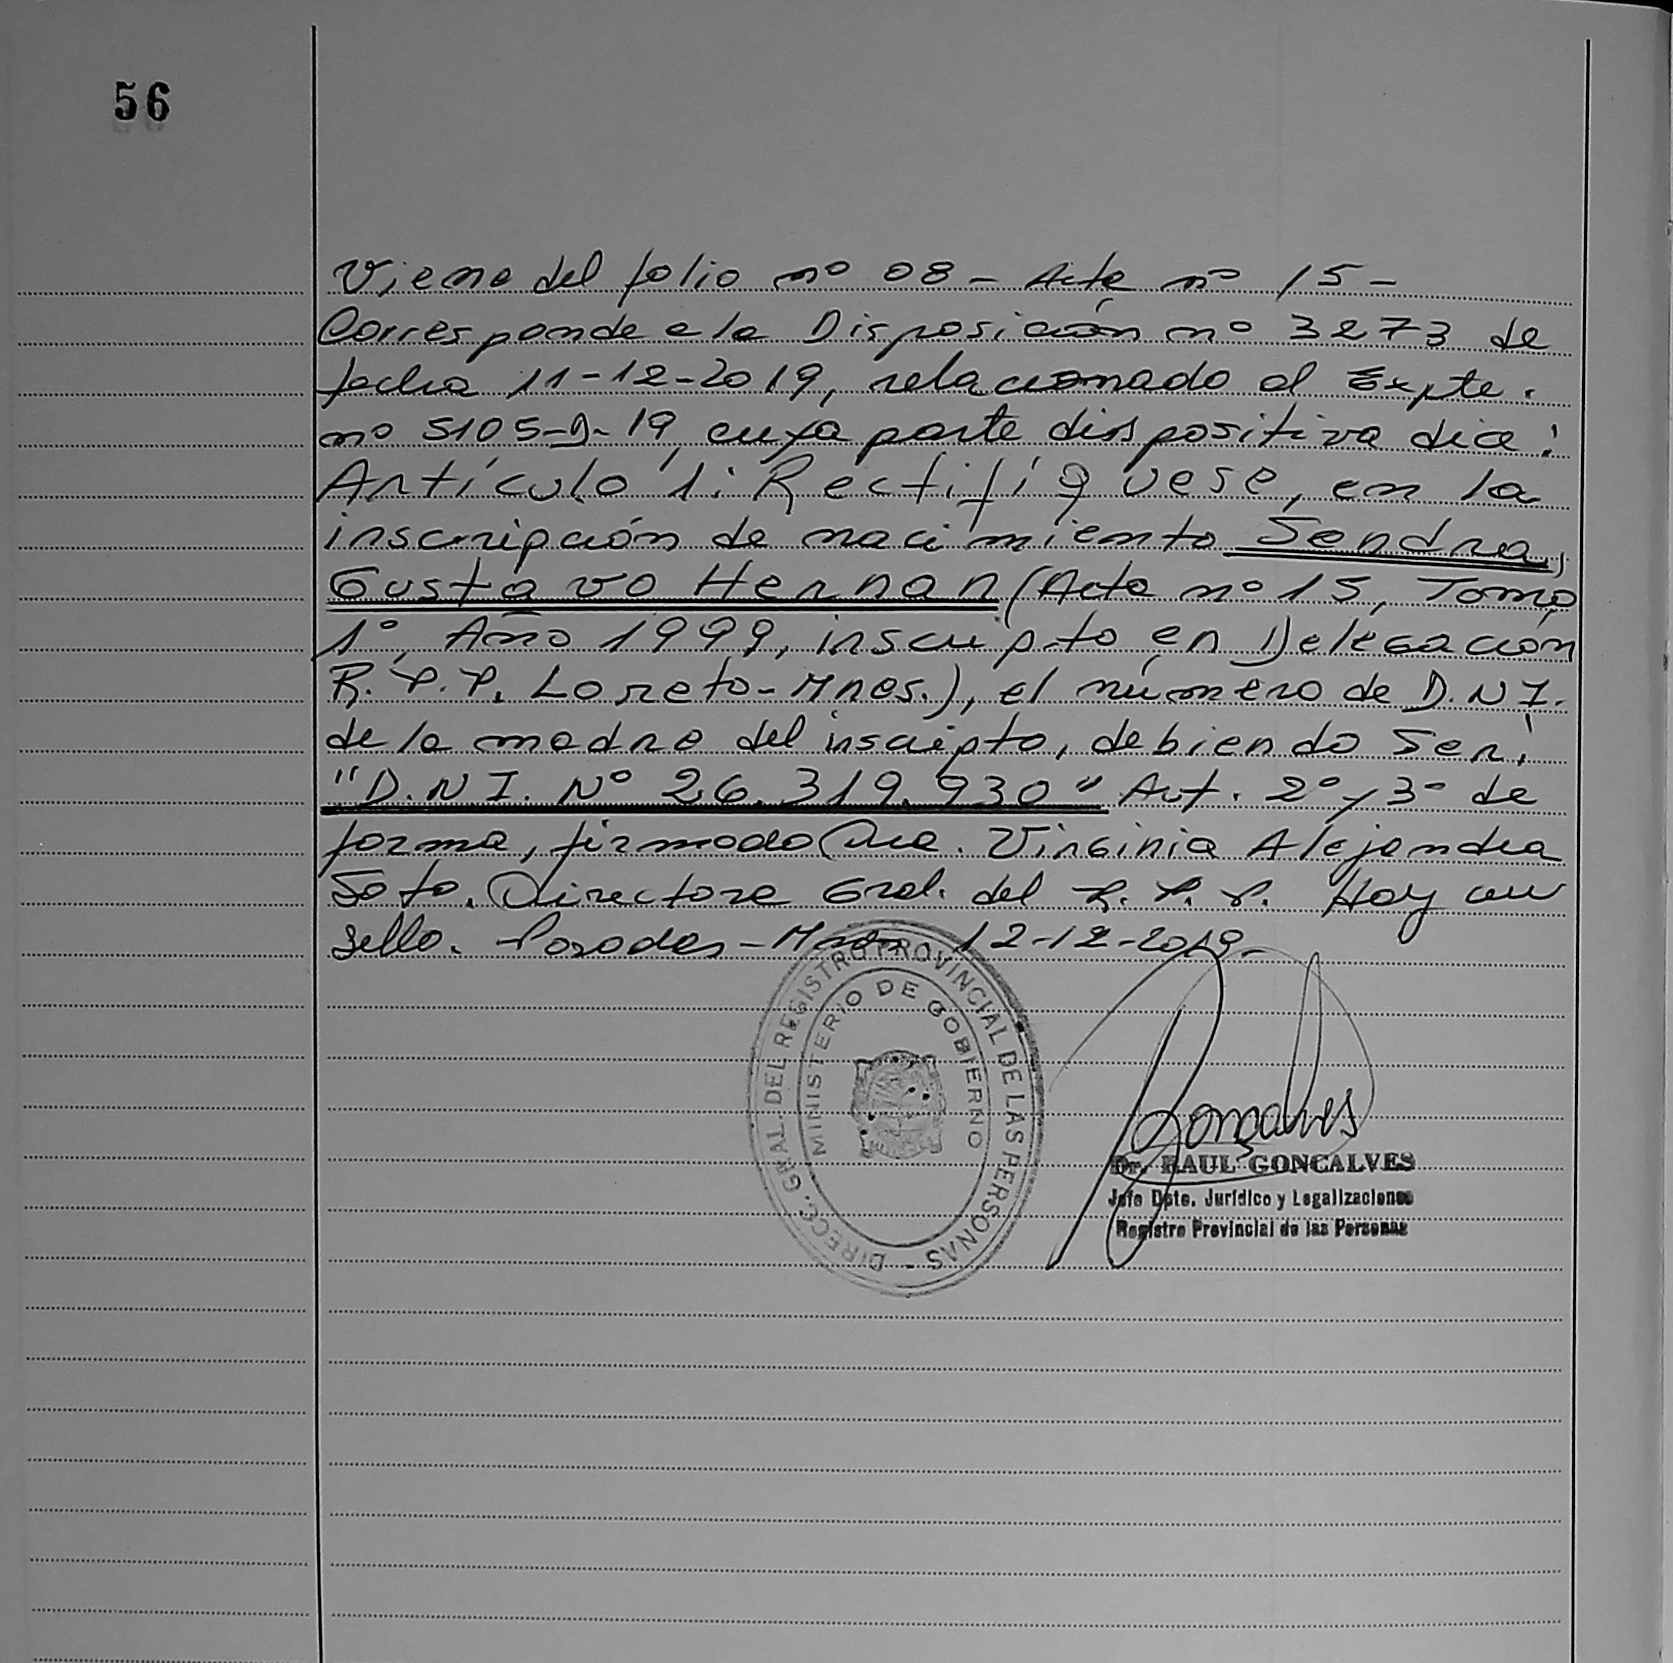 56
Viene del folio nº 08 - Acta nº 15 -
Corresponde a la Disposición nº 3273 de
fecha 11-12-2019, relacionado al Expte.
nº 5105-D-19, cuya parte dispositiva dice:
Artículo 1: Rectifíquese, en la
inscripción de nacimiento Sendra,
Gustavo Hernan (Acta nº 15, Tomo
1º, Año 1999, inscripto en Delegación
R.P.P. Loreto-Mnes.), el número de D.N.I.
de la madre del inscripto, debiendo ser:
"D.N.I. Nº 26.319.930" Art. 2º y 3º de
forma, firmado Dra. Virginia Alejandra
Soto. Directora Gral. del R.P.P. Hay un
sello. Posadas - Mnes 12-12-2019-
DIRECC. GRAL. DEL REGISTRO PROVINCIAL DE LAS PERSONAS -
MINISTERIO DE GOBIERNO
Gonçalves
Dr. RAUL GONCALVES
Jefe Dpto. Jurídico y Legalizaciones
Registro Provincial de las Personas